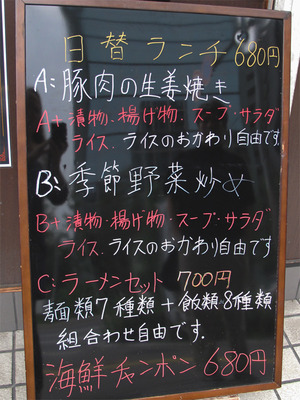 日替ランチ 680円
A:豚肉の生姜焼き
A+漬物・揚げ物・スープ・サラダ
ライス.ライスのおかわり自由です.
B:季節野菜炒め
B+漬物・揚げ物・スープ・サラダ
ライス.ライスのおかわり自由です
C:ラーメンセット 700円
麺類7種類+飯類8種類
組合わせ自由です.
海鮮チャンポン 680円